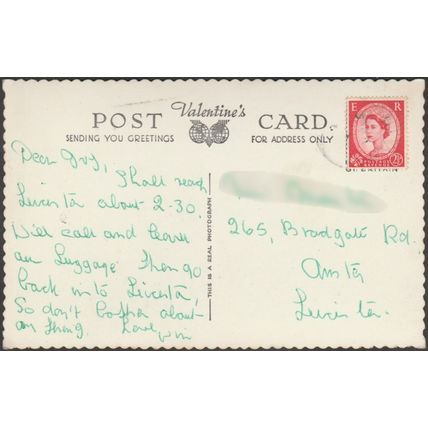 POST Valentine's CARD.
SENDING YOU GREETINGS FOR ADDRESS ONLY
E R
2½
Dear
Shall reach
Leicester about 2-30.
Will call and leave
our Luggage Then go
back into Leicester,
So don't bother about
Love
THIS IS A REAL PHOTOGRAPH
265, Bradgate Rd.
Anstey
Leicester.